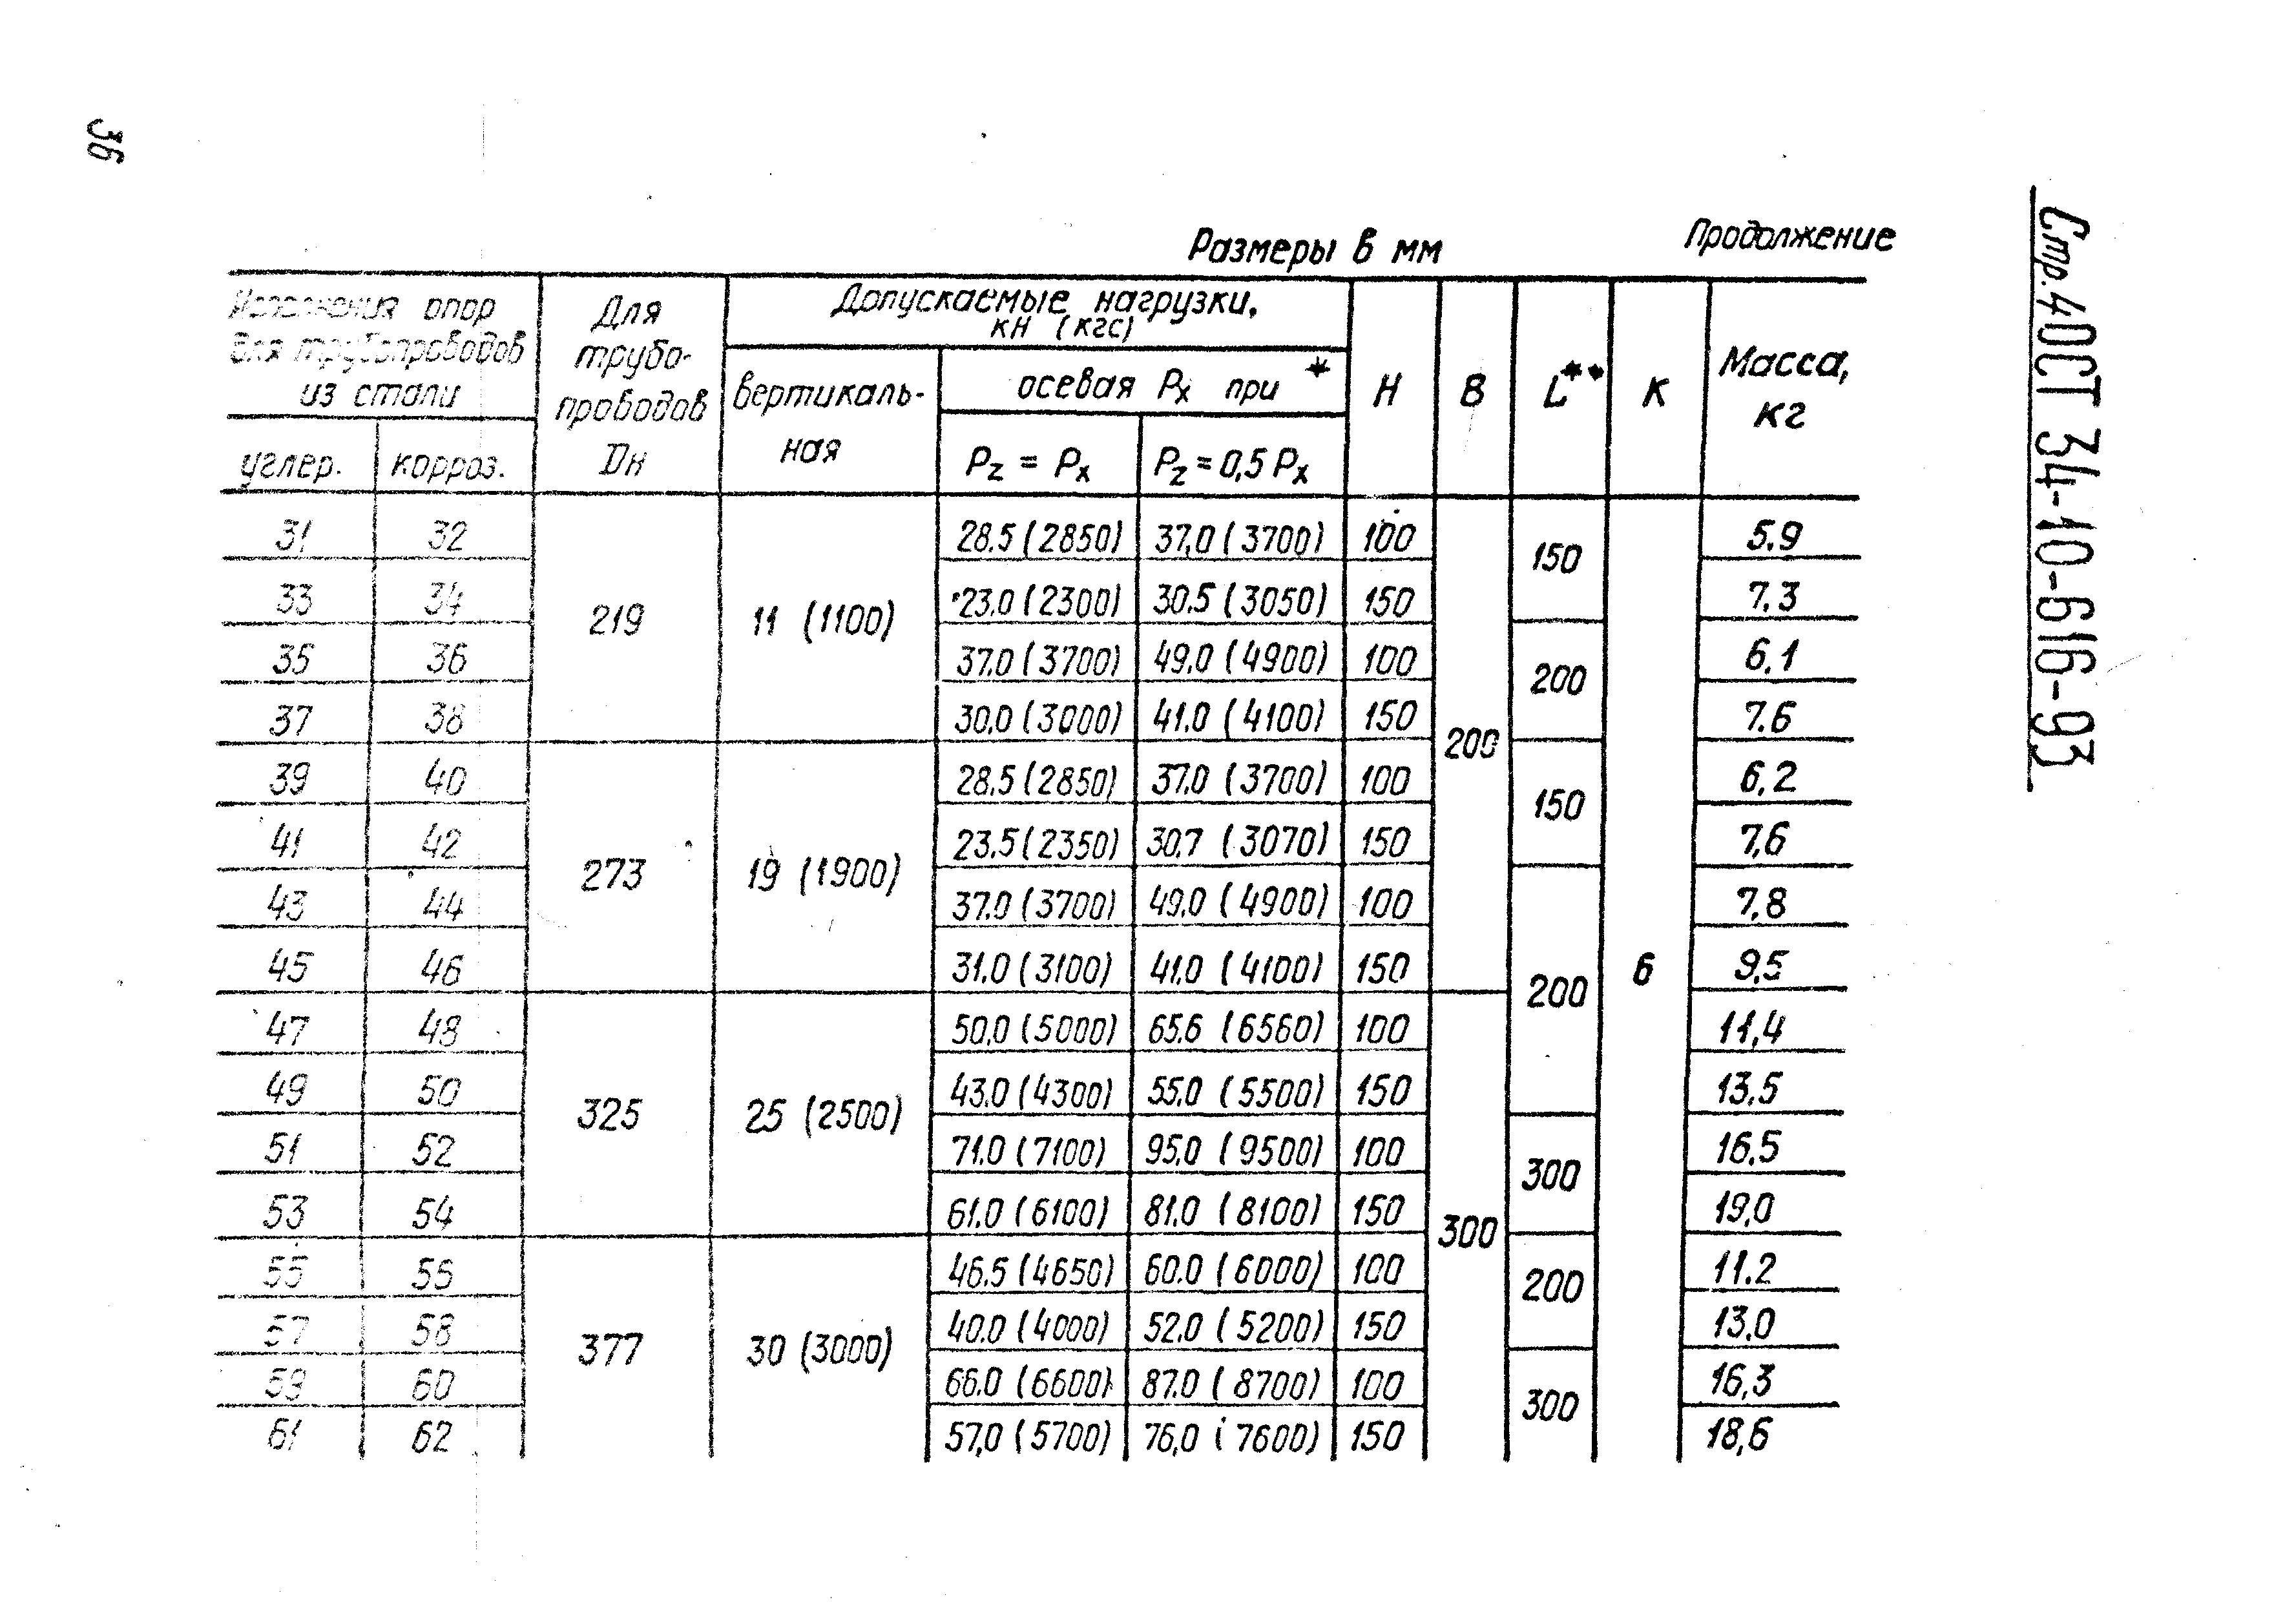 36
Стр. 4 ОСТ 34-10-616-93
Размеры в мм Продолжение
Исполнения опор для трубопроводов из стали
Для трубо-проводов Dн
Допускаемые нагрузки, кН (кгс)
H B L** K Масса, кг
вертикаль-ная
осевая Px при *
углер. корроз.
Pz = Px Pz = 0,5 Px
31 32 219 11 (1100) 28.5 (2850) 37,0 (3700) 100 200 150 6 5.9
33 34 23.0 (2300) 30.5 (3050) 150 7.3
35 36 37.0 (3700) 49.0 (4900) 100 200 6,1
37 38 30,0 (3000) 41.0 (4100) 150 7.6
39 40 273 19 (1900) 28,5 (2850) 37.0 (3700) 100 150 6,2
41 42 23.5 (2350) 30,7 (3070) 150 7,6
43 44 37.0 (3700) 49,0 (4900) 100 200 7,8
45 46 31.0 (3100) 41,0 (4100) 150 9,5
47 48 325 25 (2500) 50,0 (5000) 65,6 (6560) 100 300 11,4
49 50 43.0 (4300) 55,0 (5500) 150 13,5
51 52 71.0 (7100) 95,0 (9500) 100 300 16,5
53 54 61.0 (6100) 81.0 (8100) 150 19,0
55 56 377 30 (3000) 46.5 (4650) 60.0 (6000) 100 200 11.2
57 58 40.0 (4000) 52,0 (5200) 150 13,0
59 60 66.0 (6600) 87.0 (8700) 100 300 16,3
61 62 57,0 (5700) 76,0 (7600) 150 18,6